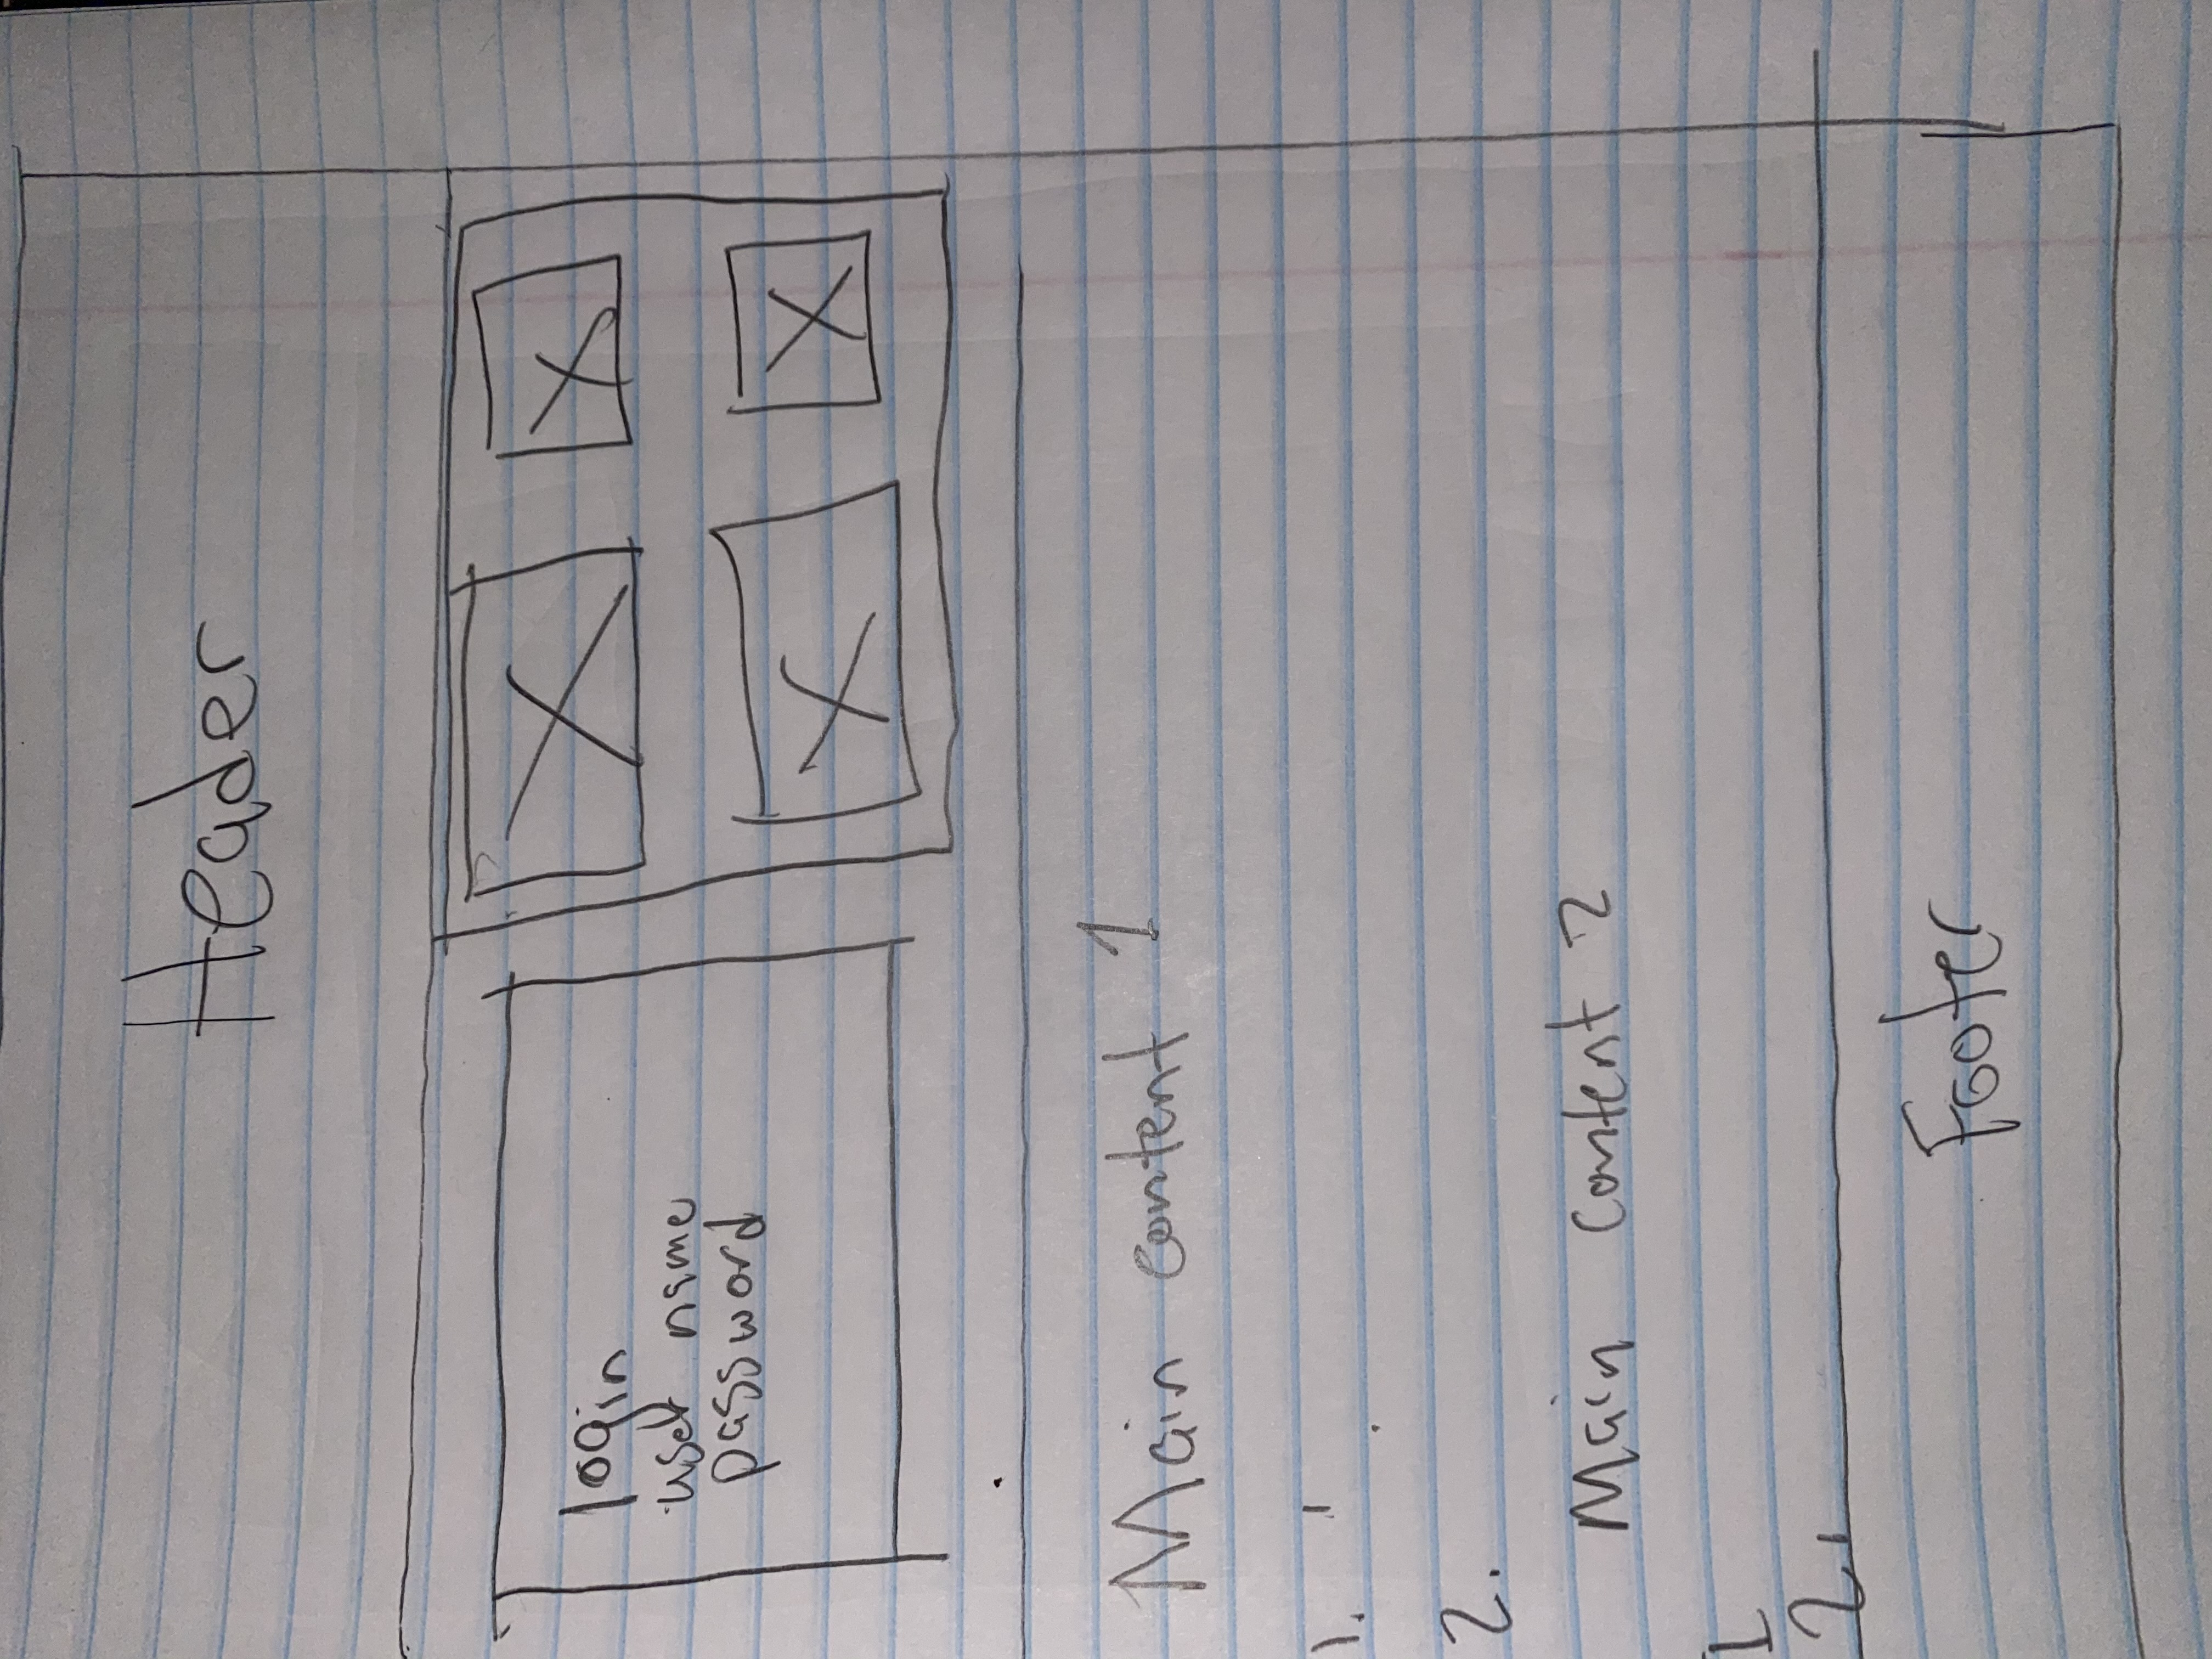 Header
login
user name
password
Main content 1
1.
2.
Main content 2
1
2.
Footer